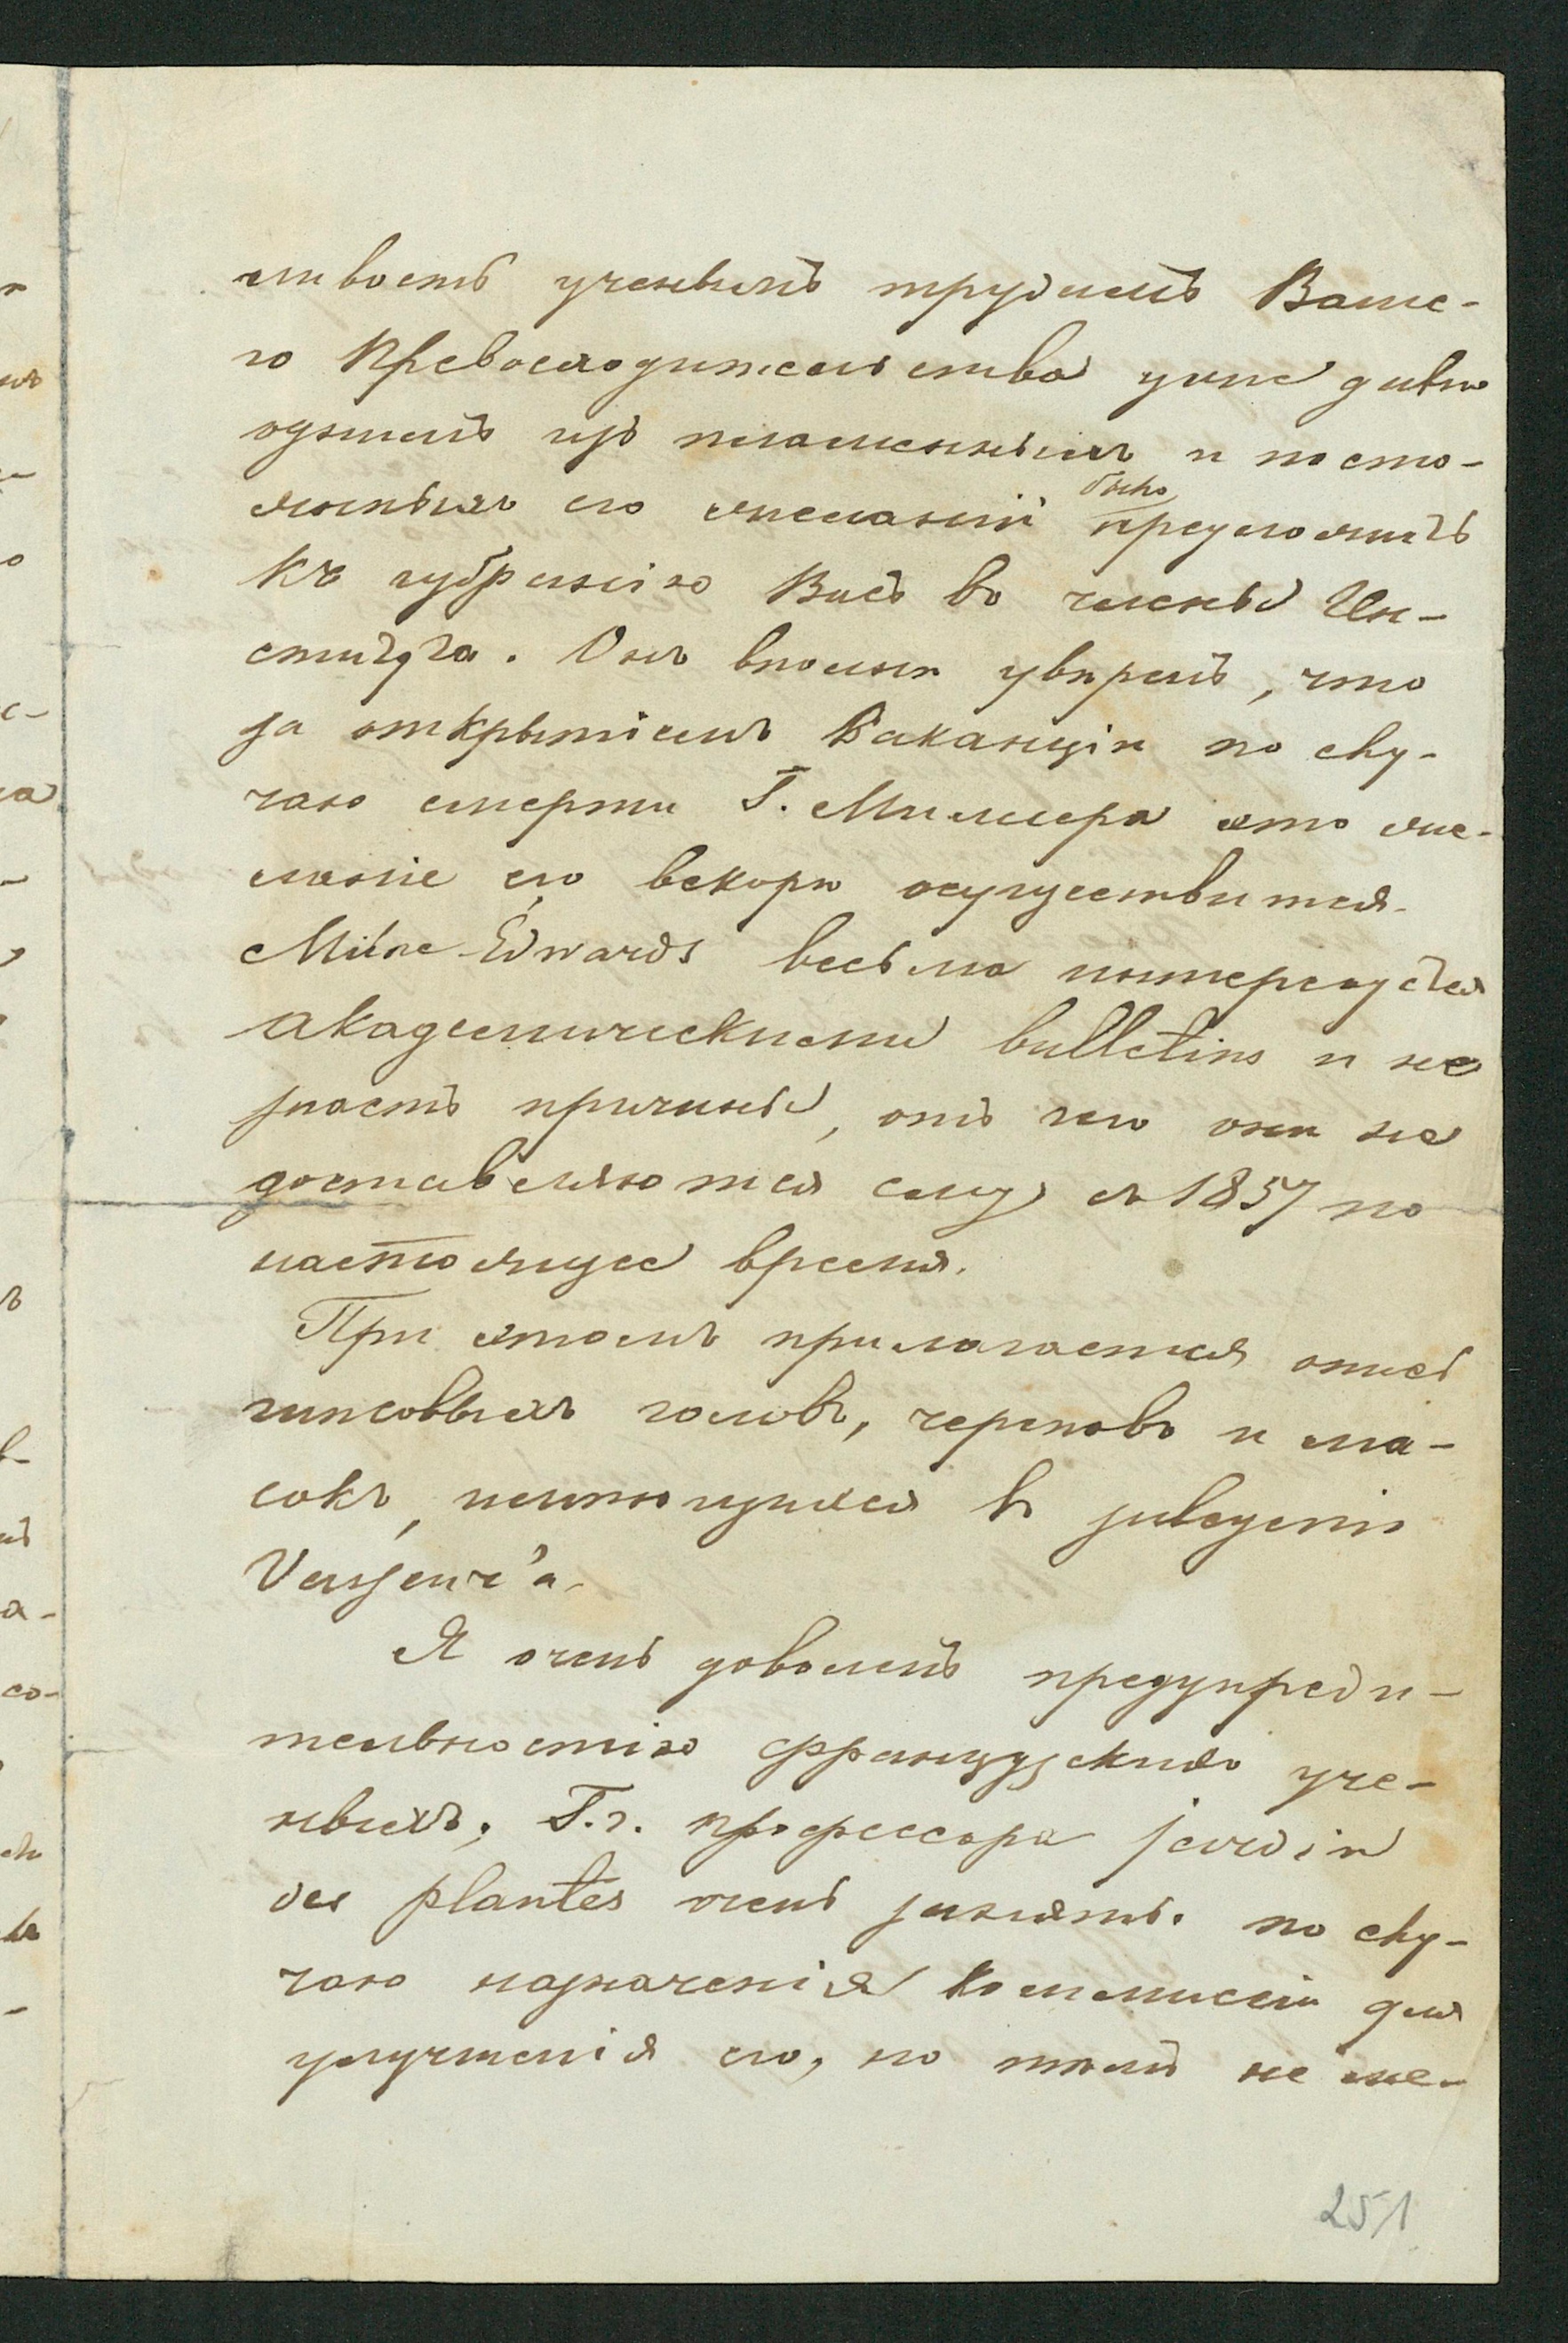 ливость ученымъ трудамъ Ваше-
го Превосходительства уже давно
однимъ изъ пламенныхъ и посто-
янныхъ его желаній было предложить
къ избранію Васъ въ члены Ин-
ститута. Онъ вполнѣ увѣренъ, что
за открытіемъ Ваканціи по слу-
чаю смерти Г. Миллера это же-
ланіе его вскорѣ осуществится.
Milne-Edwards весьма интересуется
академическими bulletins и не
знаетъ причины, отъ чего они не
доставляются ему съ 1857 по
настоящее время.
При этомъ прилагается опись
гипсовыхъ головъ, череповъ и ма-
сокъ, имѣющихся въ заведеніи
Vasseur'а.
Я очень доволенъ предупреди-
тельностію французскихъ уче-
ныхъ. Г.г. профессора jardin
des plantes очень заняты по слу-
чаю назначенія Коммиссіи для
улучшенія его, но тѣмъ не ме-
251